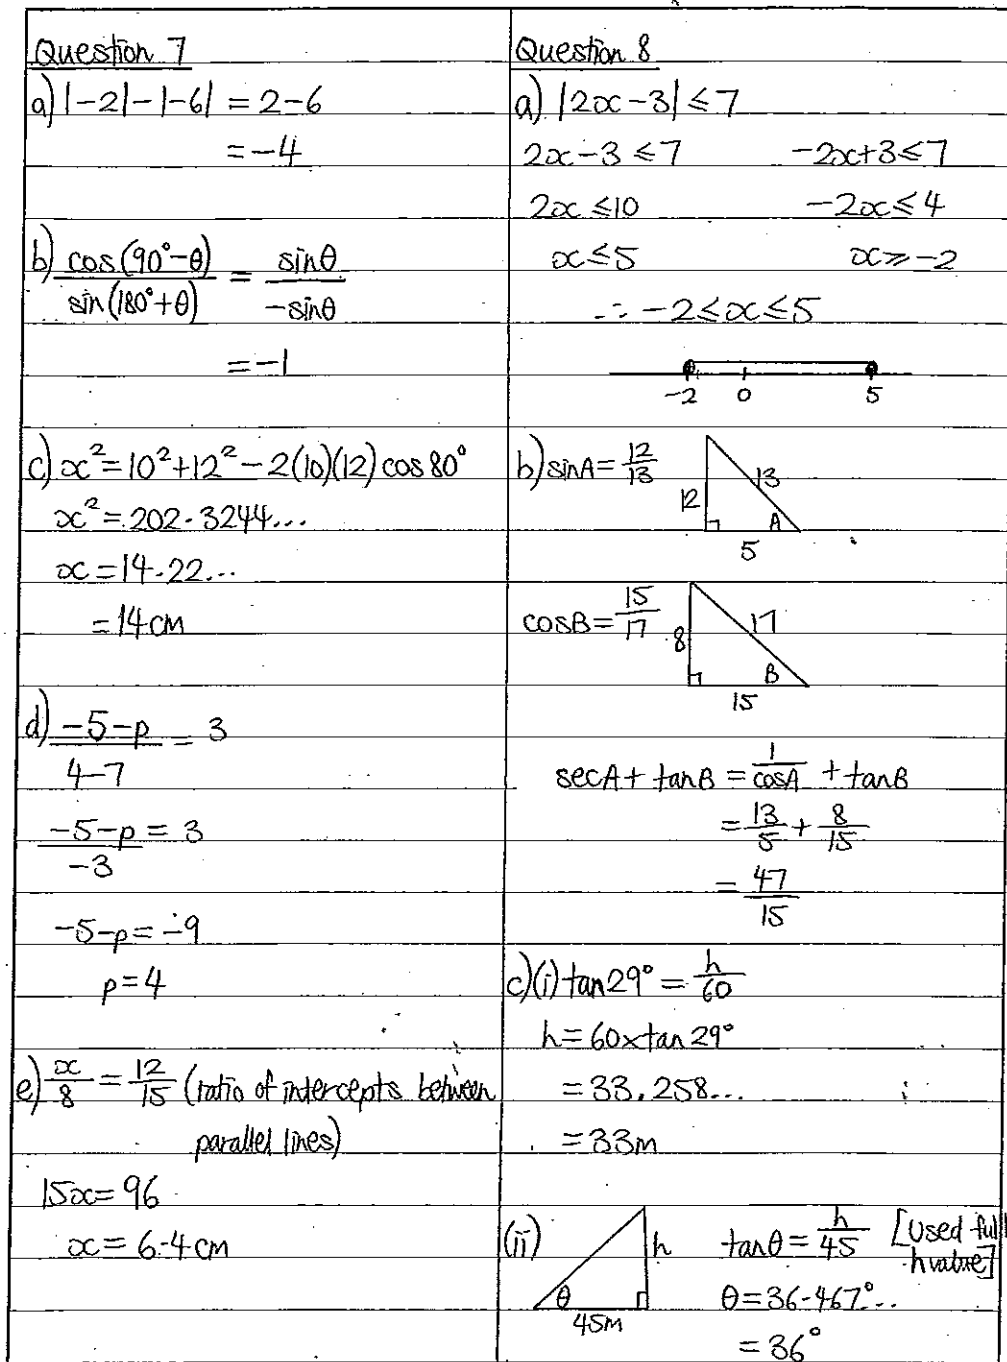 Question 7
a) |-2|-|-6| = 2-6
= -4
b) cos(90°-θ)/sin(180°+θ) = sinθ/-sinθ
= -1
c) x² = 10²+12²-2(10)(12) cos80°
x² = 202.3244...
x = 14.22...
= 14 cm
d) -5-p/4-7 = 3
-5-p/-3 = 3
-5-p = -9
p = 4
e) x/8 = 12/15 (ratio of intercepts between
parallel lines)
15x = 96
x = 6.4 cm
Question 8
a) |2x-3| ≤ 7
2x-3 ≤ 7 -2x+3 ≤ 7
2x ≤ 10 -2x ≤ 4
x ≤ 5 x ≥ -2
∴ -2 ≤ x ≤ 5
-2 0 5
b) sinA = 12/13
12 13 A
5
cosB = 15/17
8 17 B
15
secA + tanB = 1/cosA + tanB
= 13/5 + 8/15
= 47/15
c) (i) tan29° = h/60
h = 60×tan29°
= 33.258...
= 33m
(ii) θ h 45m
tanθ = h/45 [Used full
h value]
θ = 36.467°...
= 36°